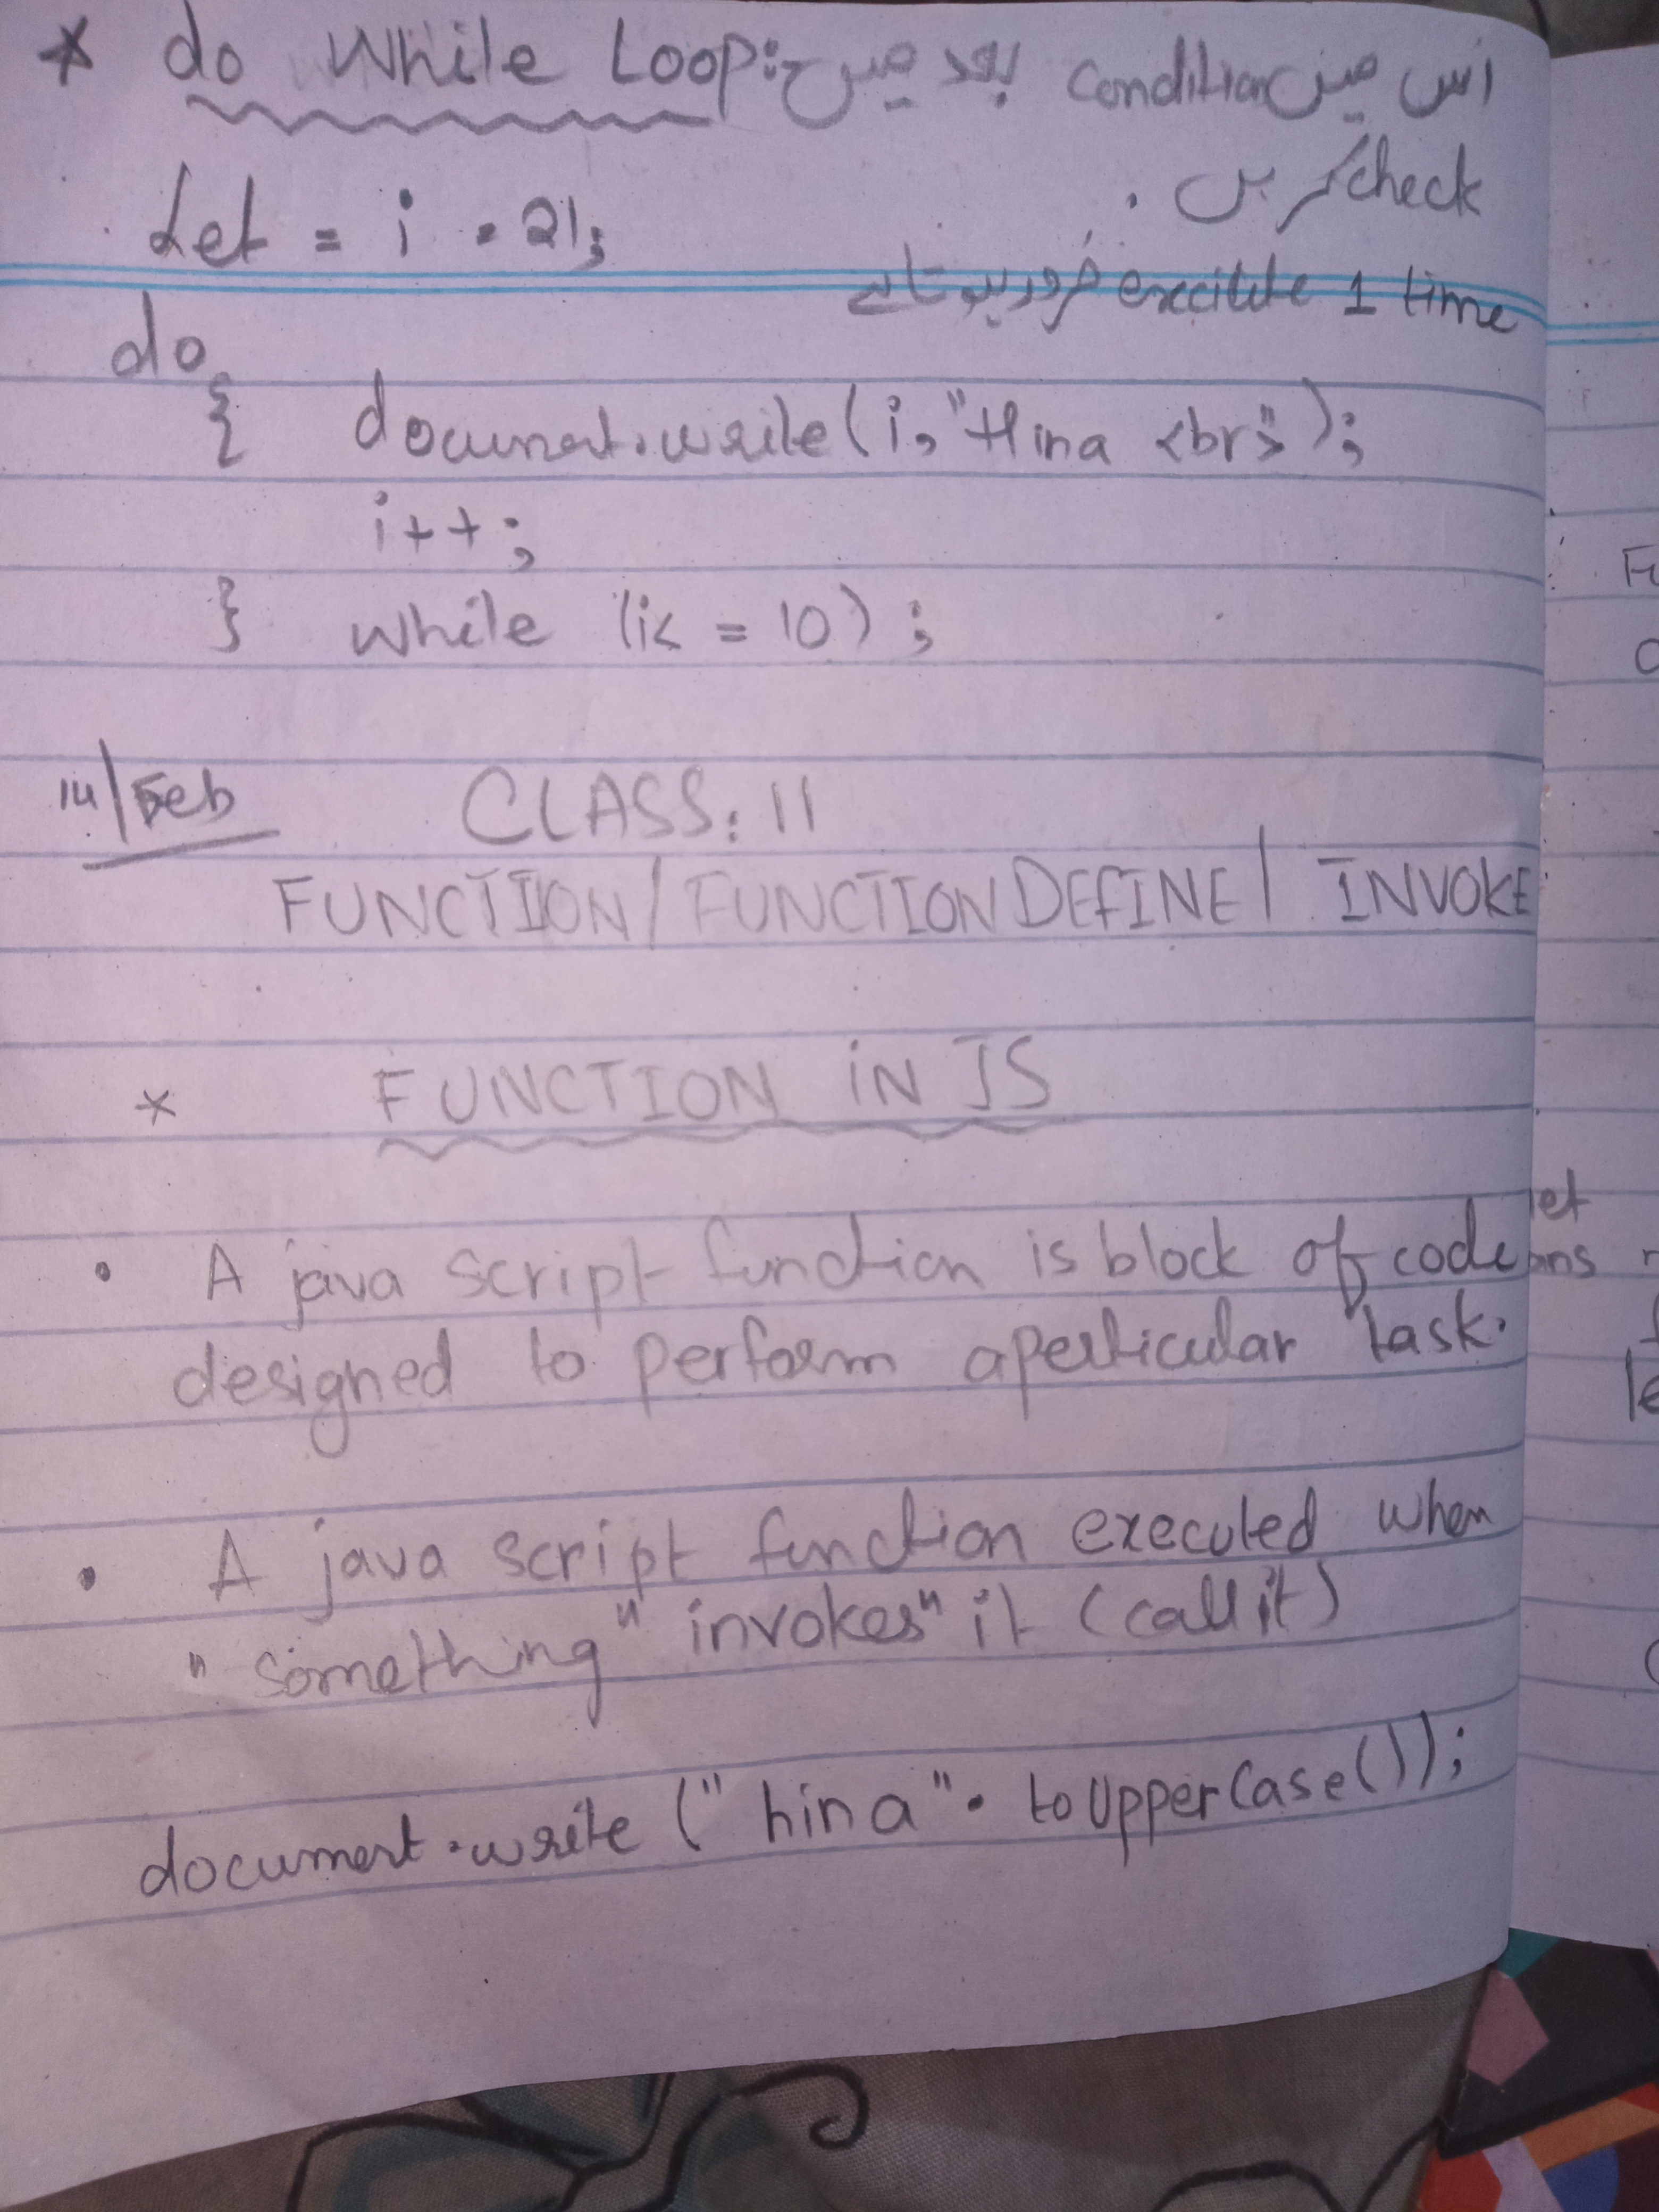 * do while Loop: اس میں condition بعد میں
check کریں .
Let = i = 21;
execitite 1 time ضرور ہوتا ہے
do
{ document.write(i,"Hina <br>");
i++;
} while (i< = 10) ;
14/Feb CLASS: 11
FUNCTION/FUNCTION DEFINE/ INVOKE
* FUNCTION iN JS
• A java script function is block of code
designed to perform a perticular task.
• A java script function executed when
"something" invokes" it (call it)
document.write ("hina". toUpperCase());
let
ons